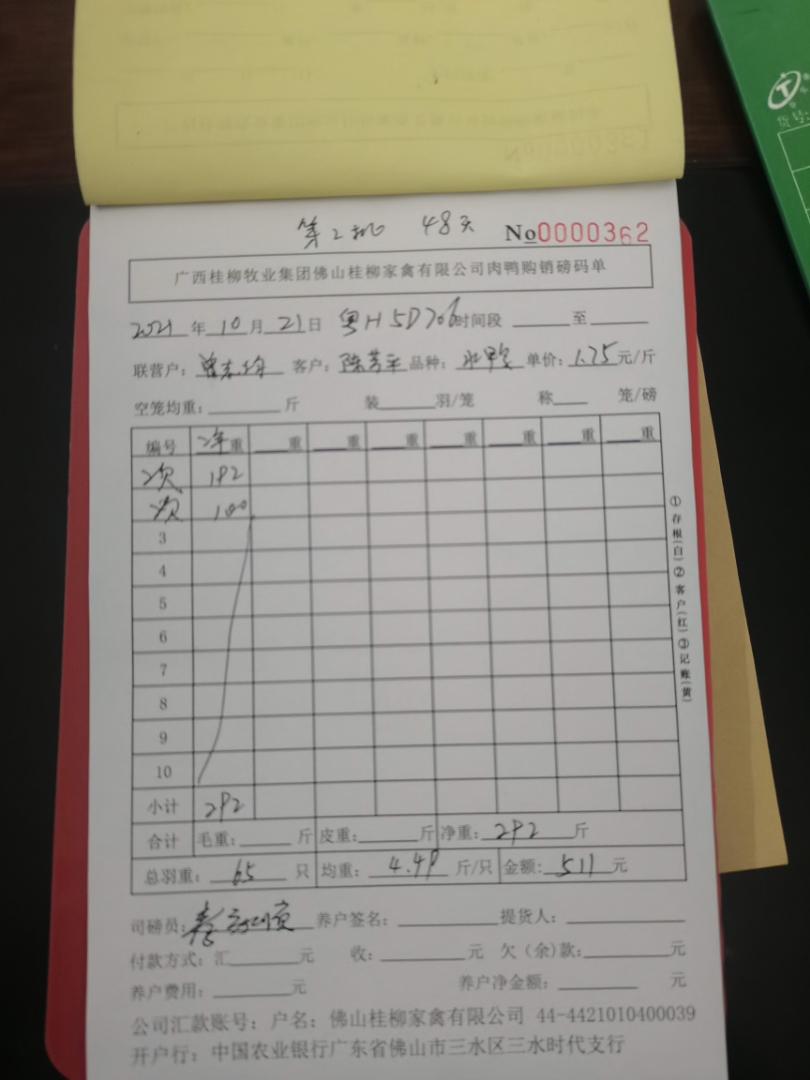 第2批 48天 No0000362
广西桂柳牧业集团佛山桂柳家禽有限公司肉鸭购销磅码单
2021年10月21日 粤H5D706 时间段 至
联营户: 客户: 陈芳平 品种: 单价: 1.75元/斤
空笼均重: 斤 装 羽/笼 称 笼/磅
编号 净重 重 重 重 重 重 重 重
次 192
次 100
3
4
5
6
7
8
9
10
小计 292
合计 毛重: 斤 皮重: 斤 净重: 292斤
总羽重: 65 只 均重: 4.49 斤/只 金额: 511元
司磅员: 养户签名: 提货人:
付款方式: 汇 元 收: 元 欠(余)款: 元
养户费用: 元 养户净金额: 元
公司汇款账号: 户名: 佛山桂柳家禽有限公司 44-4421010400039
开户行: 中国农业银行广东省佛山市三水区三水时代支行
①存根(白)②客户(红)③记账(黄)
货号: